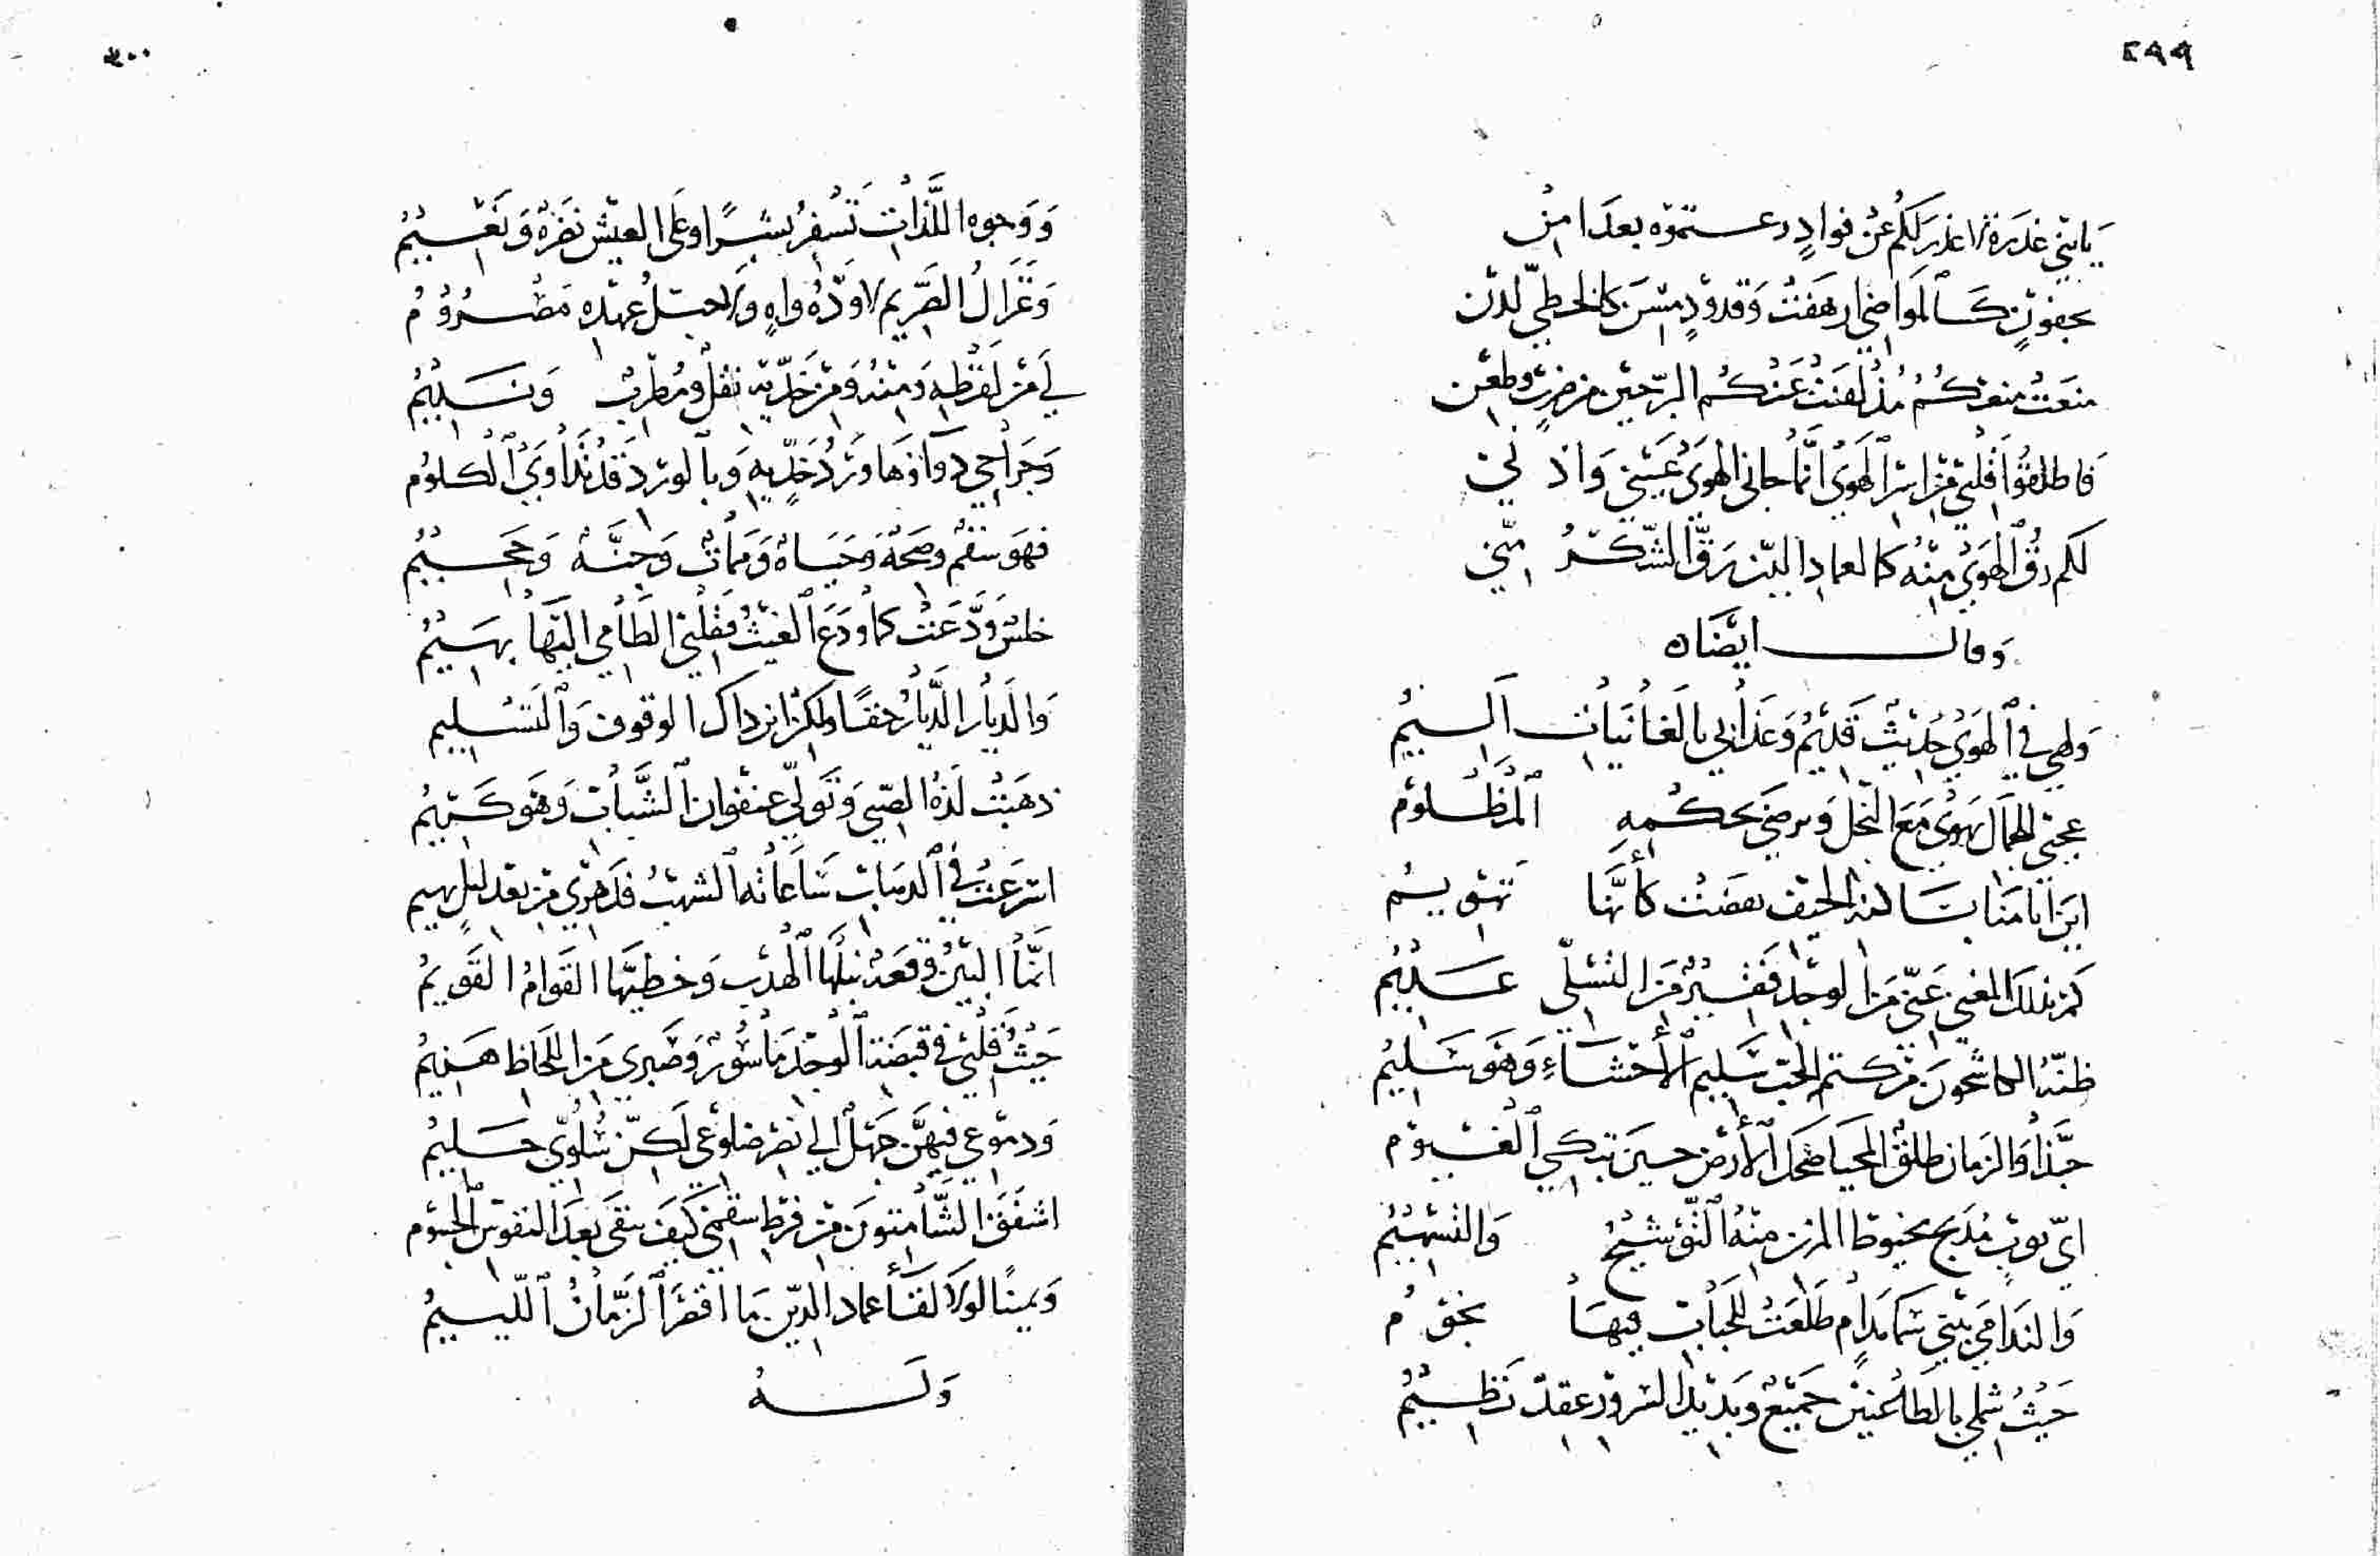 ٢٩٩
يا بني عذرة اعذر لكم عن فوادٍ رعتموه بعد امن
بجفونٍ كالمواضي ارهفت وقدودٍ مسن كالخطي لدن
منعت منعكم مذ عنكم الرحين من ضربٍ وطعن
فاطلقوا قلبي من اسر الهوى انما جاني الهوى عيني واذني
لكم رق الهوى منه كما لعماد الدين رق الشكر مني
وقال ايضاه
ولهي في الهوى حديث قديم وعذابي بالغانيات اليم
عجبي للجمال يهوى مع البخل ويرضى بحكمه المظلوم
اين ايامنا بسالفة الخيف تقضت كأنها تهويم
كم بذلك المغنى غني من الوجد فقير من التسلي عديم
ظنه الكاشحون من كتم الحب سليم الأحشاء وهو سليم
حبذا والزمان طلق المحيا ضحك الأرض حين تبكي الغيوم
اي ثوبٍ مدبج بخيوط المزن منه التوشيح والتسهيم
والندامى بيتي سما مدامٍ طلعت للحباب فيها نجوم
حيث شملي بالظاعنين جميع وبديد السرور عقد نظيم
٣٠٠
ووجوه اللذات تسفر بشرًا وعلى العيش نضرة ونعيم
وغزال الصريم لا وده واهٍ ولا حبل عهده مصروم
لي من لفظه ومنه ومن خديه نقل ومطرب ونسيم
وجراحي دواؤها ورد خديه وبالورد قد تداوى الكلوم
فهو سقم وصحة وحياة وممات وجنة وجحيم
خلس ودعت كما ودع الغيث فقلبي الظامي اليها يهيم
والديار الديار حقًا ولكن اين ذاك الوقوف والتسليم
ذهبت لذة الصبى وتولى عنفوان الشباب وهو كريم
اسرعت في الدبيب ساعاته الشهب فدهري من بعد ليلٍ بهيم
انما البين وقعة نبلها الهدب وخطيها القوام القويم
حيث قلبي في قبضة الوجد مأسور وصبري من اللحاظ هزيم
ودموعي فيهن جهل الى نضر ضلوعي لكن سلوي حليم
اشفق الشامتون من فرط سقمي كيف تبقى بعد النفوس الجسوم
ويمينًا لولا لقأ عماد الدين ما اقصر الزمان اللئيم
ولـــه